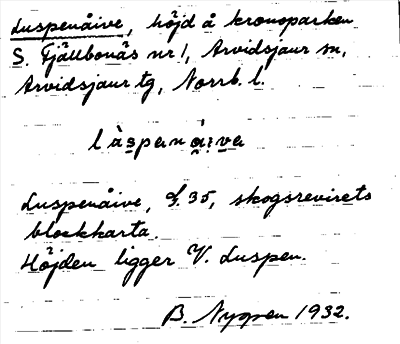 Luspenåive, höjd å kronoparken
S. Fjällbonäs nr 1, Arvidsjaur sn,
Arvidsjaur tg, Norrb. l.
làspenáiva
Luspenåive, S. 35, skogsrevirets
blockkarta.
Höjden ligger V. Luspen.
B. Nygren 1932.